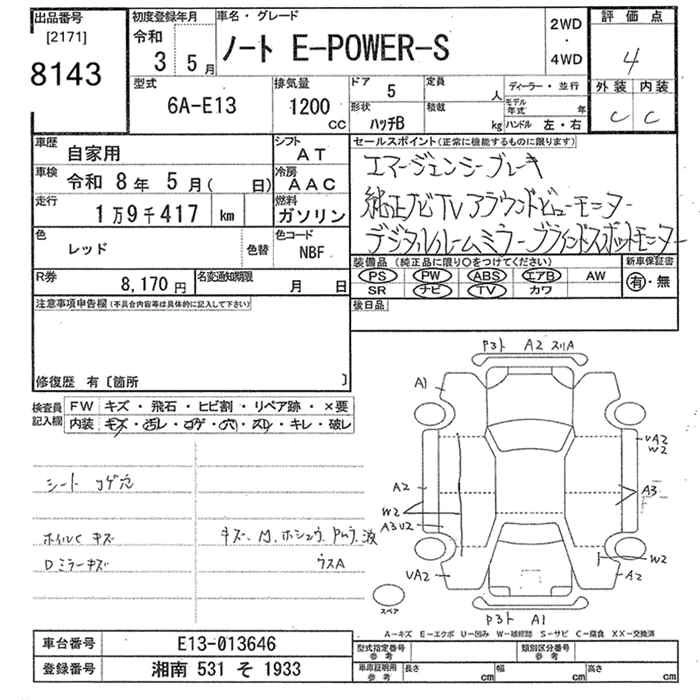 出品番号
[2171]
8143
初度登録年月
令和
3 5月
車名・グレード
ノート E-POWER-S
2WD
・
4WD
評価点
4
外装 内装
C C
型式
6A-E13
排気量
1200
CC
ドア 5
形状
ハッチB
定員
人
積載
kg
ディーラー・並行
モデル年式 年
ハンドル 左・右
車歴 自家用
シフト AT
車検 令和 8年 5月( 日)
冷房 AAC
走行 1万9千417 km
燃料 ガソリン
色 レッド
色替
色コード NBF
R券 8,170円
名変通知期限 月 日
セールスポイント(正常に機能するものに限ります)
エマージェンシーブレーキ
純正ナビTVアラウンドビューモニター
デジタルルームミラーブラインドスポットモニター
装備品(純正品に限り○をつけてください)
新車保証書
PS PW ABS エアB AW
SR ナビ TV カワ
有・無
後日品
注意事項申告欄(不具合内容等は具体的に記入して下さい)
修復歴 有〔箇所 〕
検査員記入欄
FW キズ・飛石・ヒビ割・リペア跡・×要
内装 キズ・汚レ・コゲ・穴・スレ・キレ・破レ
シート コゲ穴
ホイルC キズ
Dミラーキズ
ウスA
P3ト A2 スリA
A1
VA2
W2
A2
A3
W2
A3U2
W2
VA2
A2
P3ト A1
スペア
A-キズ E-エクボ U-凹み W-補修跡 S-サビ C-腐食 XX-交換済
車台番号 E13-013646
登録番号 湘南 531 そ 1933
型式指定番号
参考
類別区分番号
参考
車庫証明用
参考
長さ cm
幅 cm
高さ cm